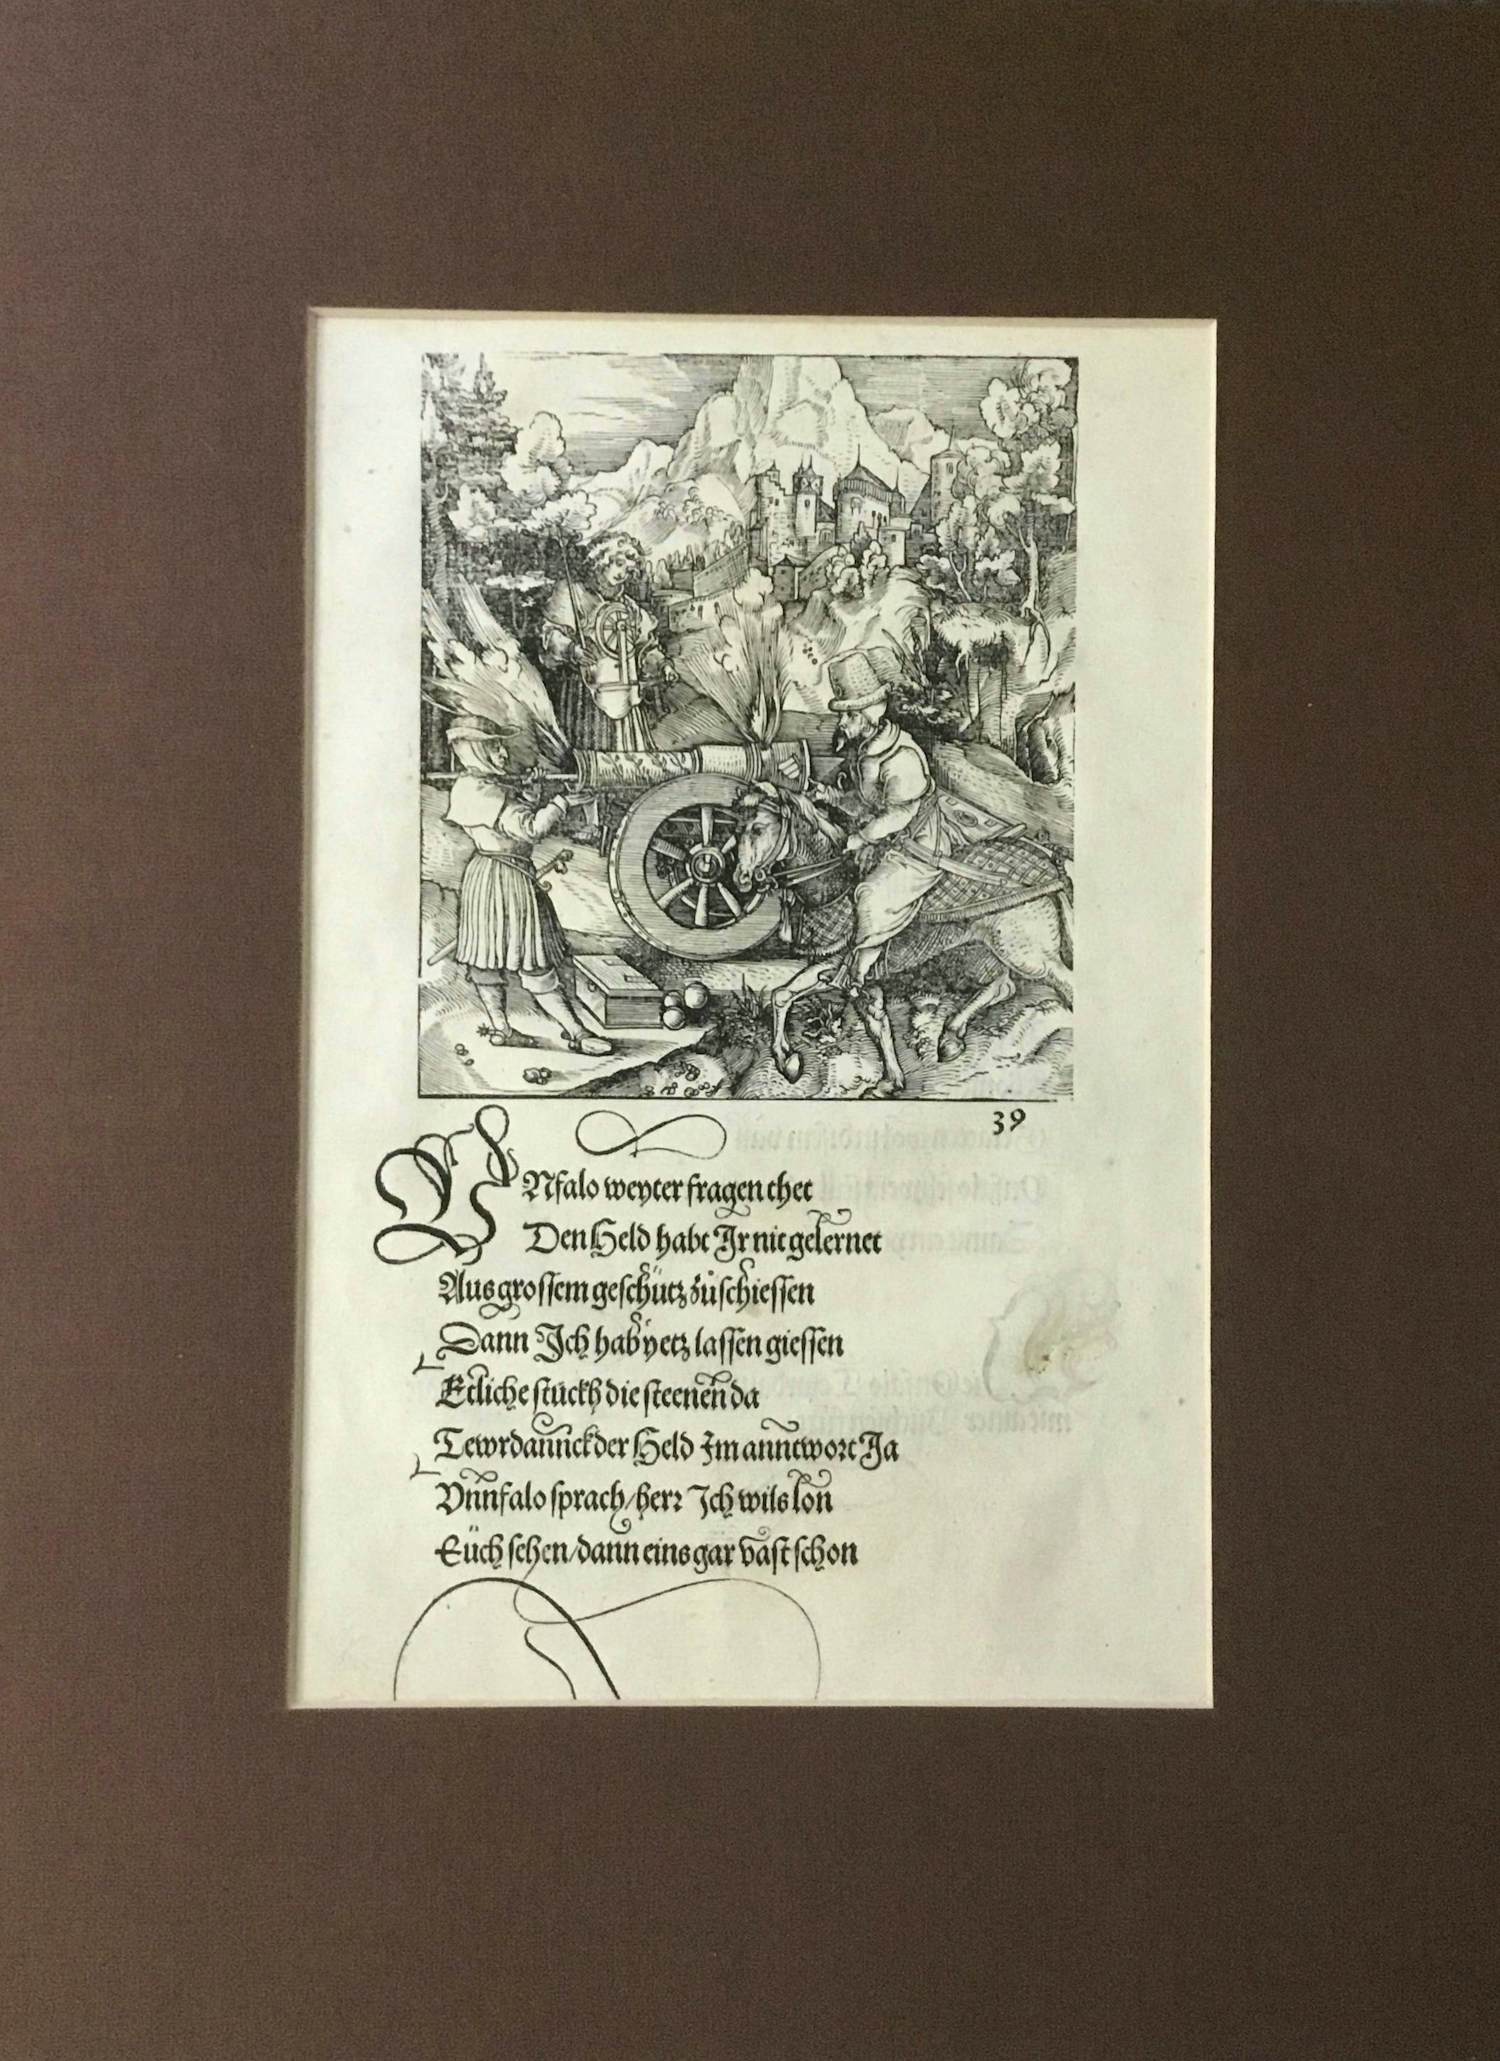 39
VNfalo weyter fragen thet
Den Held habt Ir nit gelernet
Aus grossem geschütz zůschiessen
Dann Ich hab yetz lassen giessen
Etliche stuckh die steenen da
Tewrdannckder Held Im anntwort Ja
Vnnfalo sprach/herr Ich wils lon
Eüch sehen/dann eins gar vast schon